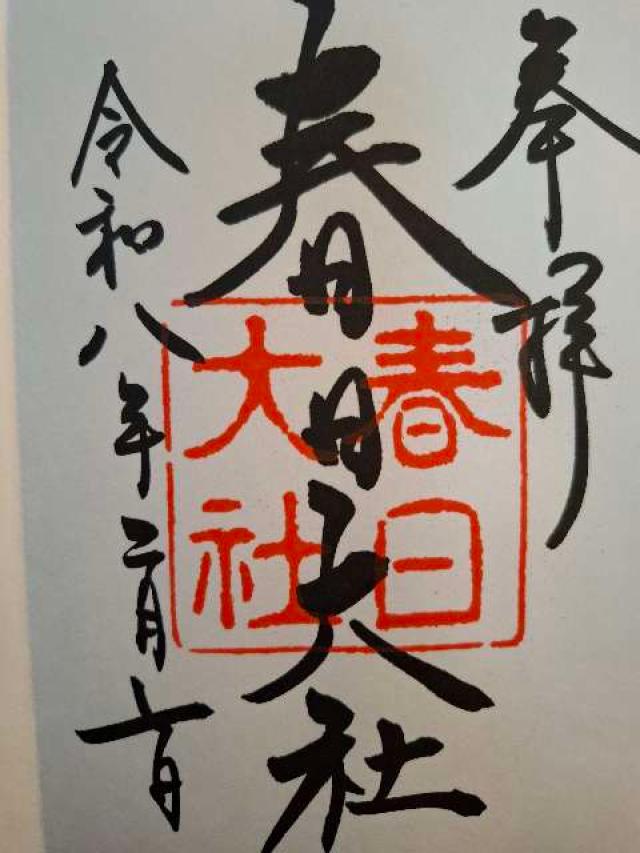 奉拝
春日大社
春日
大社
令和八年二月日